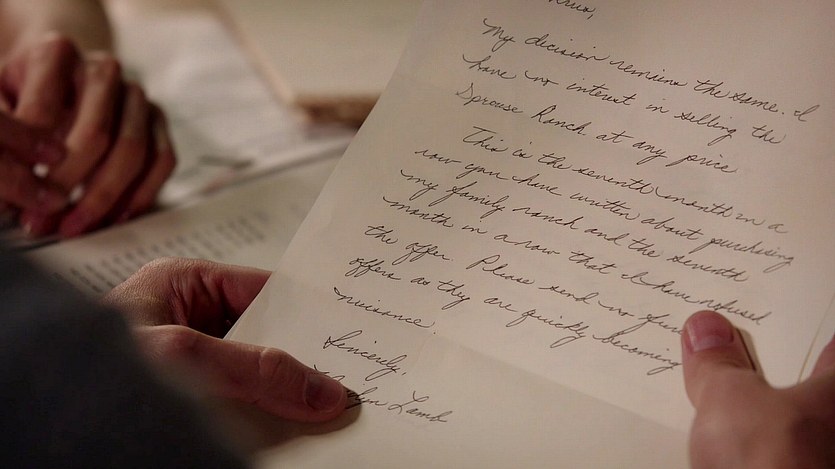 My decision remains the same. I
have no interest in selling the
Sprouse Ranch at any price
This is the seventh month in a
row you have written about purchasing
my family ranch and the seventh
month in a row that I have refused
the offer. Please send no
offers as they are quickly becoming
nuisance.
Sincerely,
Lamb